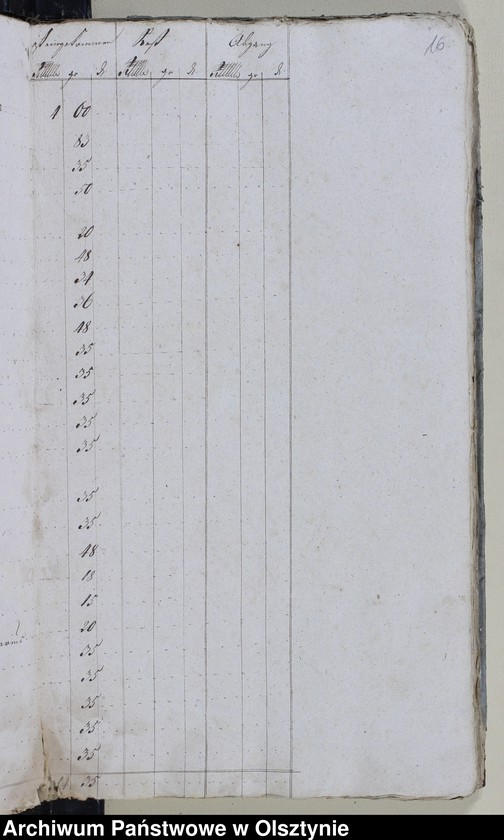 16
eingekommen Rest Abgang
Rthlr gr d Rthlr gr d Rthlr gr d
1 60
83
35
50
20
48
34
36
48
35
35
35
35
35
35
35
48
18
15
20
35
35
35
35
35
35
Archiwum Państwowe w Olsztynie